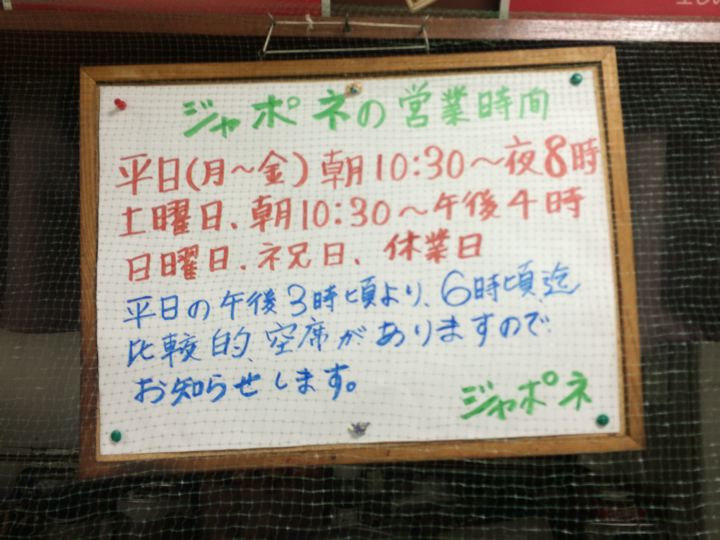 ジャポネの営業時間
平日(月～金)朝10:30～夜8時
土曜日、朝10:30～午後4時
日曜日、祝日、休業日
平日の午後3時頃より、6時頃迄
比較的、空席がありますので
お知らせします。
ジャポネ